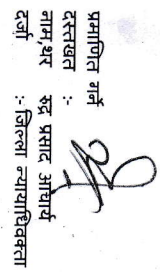 प्रमाणित गर्ने
दस्तखत :-
नाम,थर रुद्र प्रसाद आचार्य
दर्जा :- जिल्ला न्यायाधिवक्ता